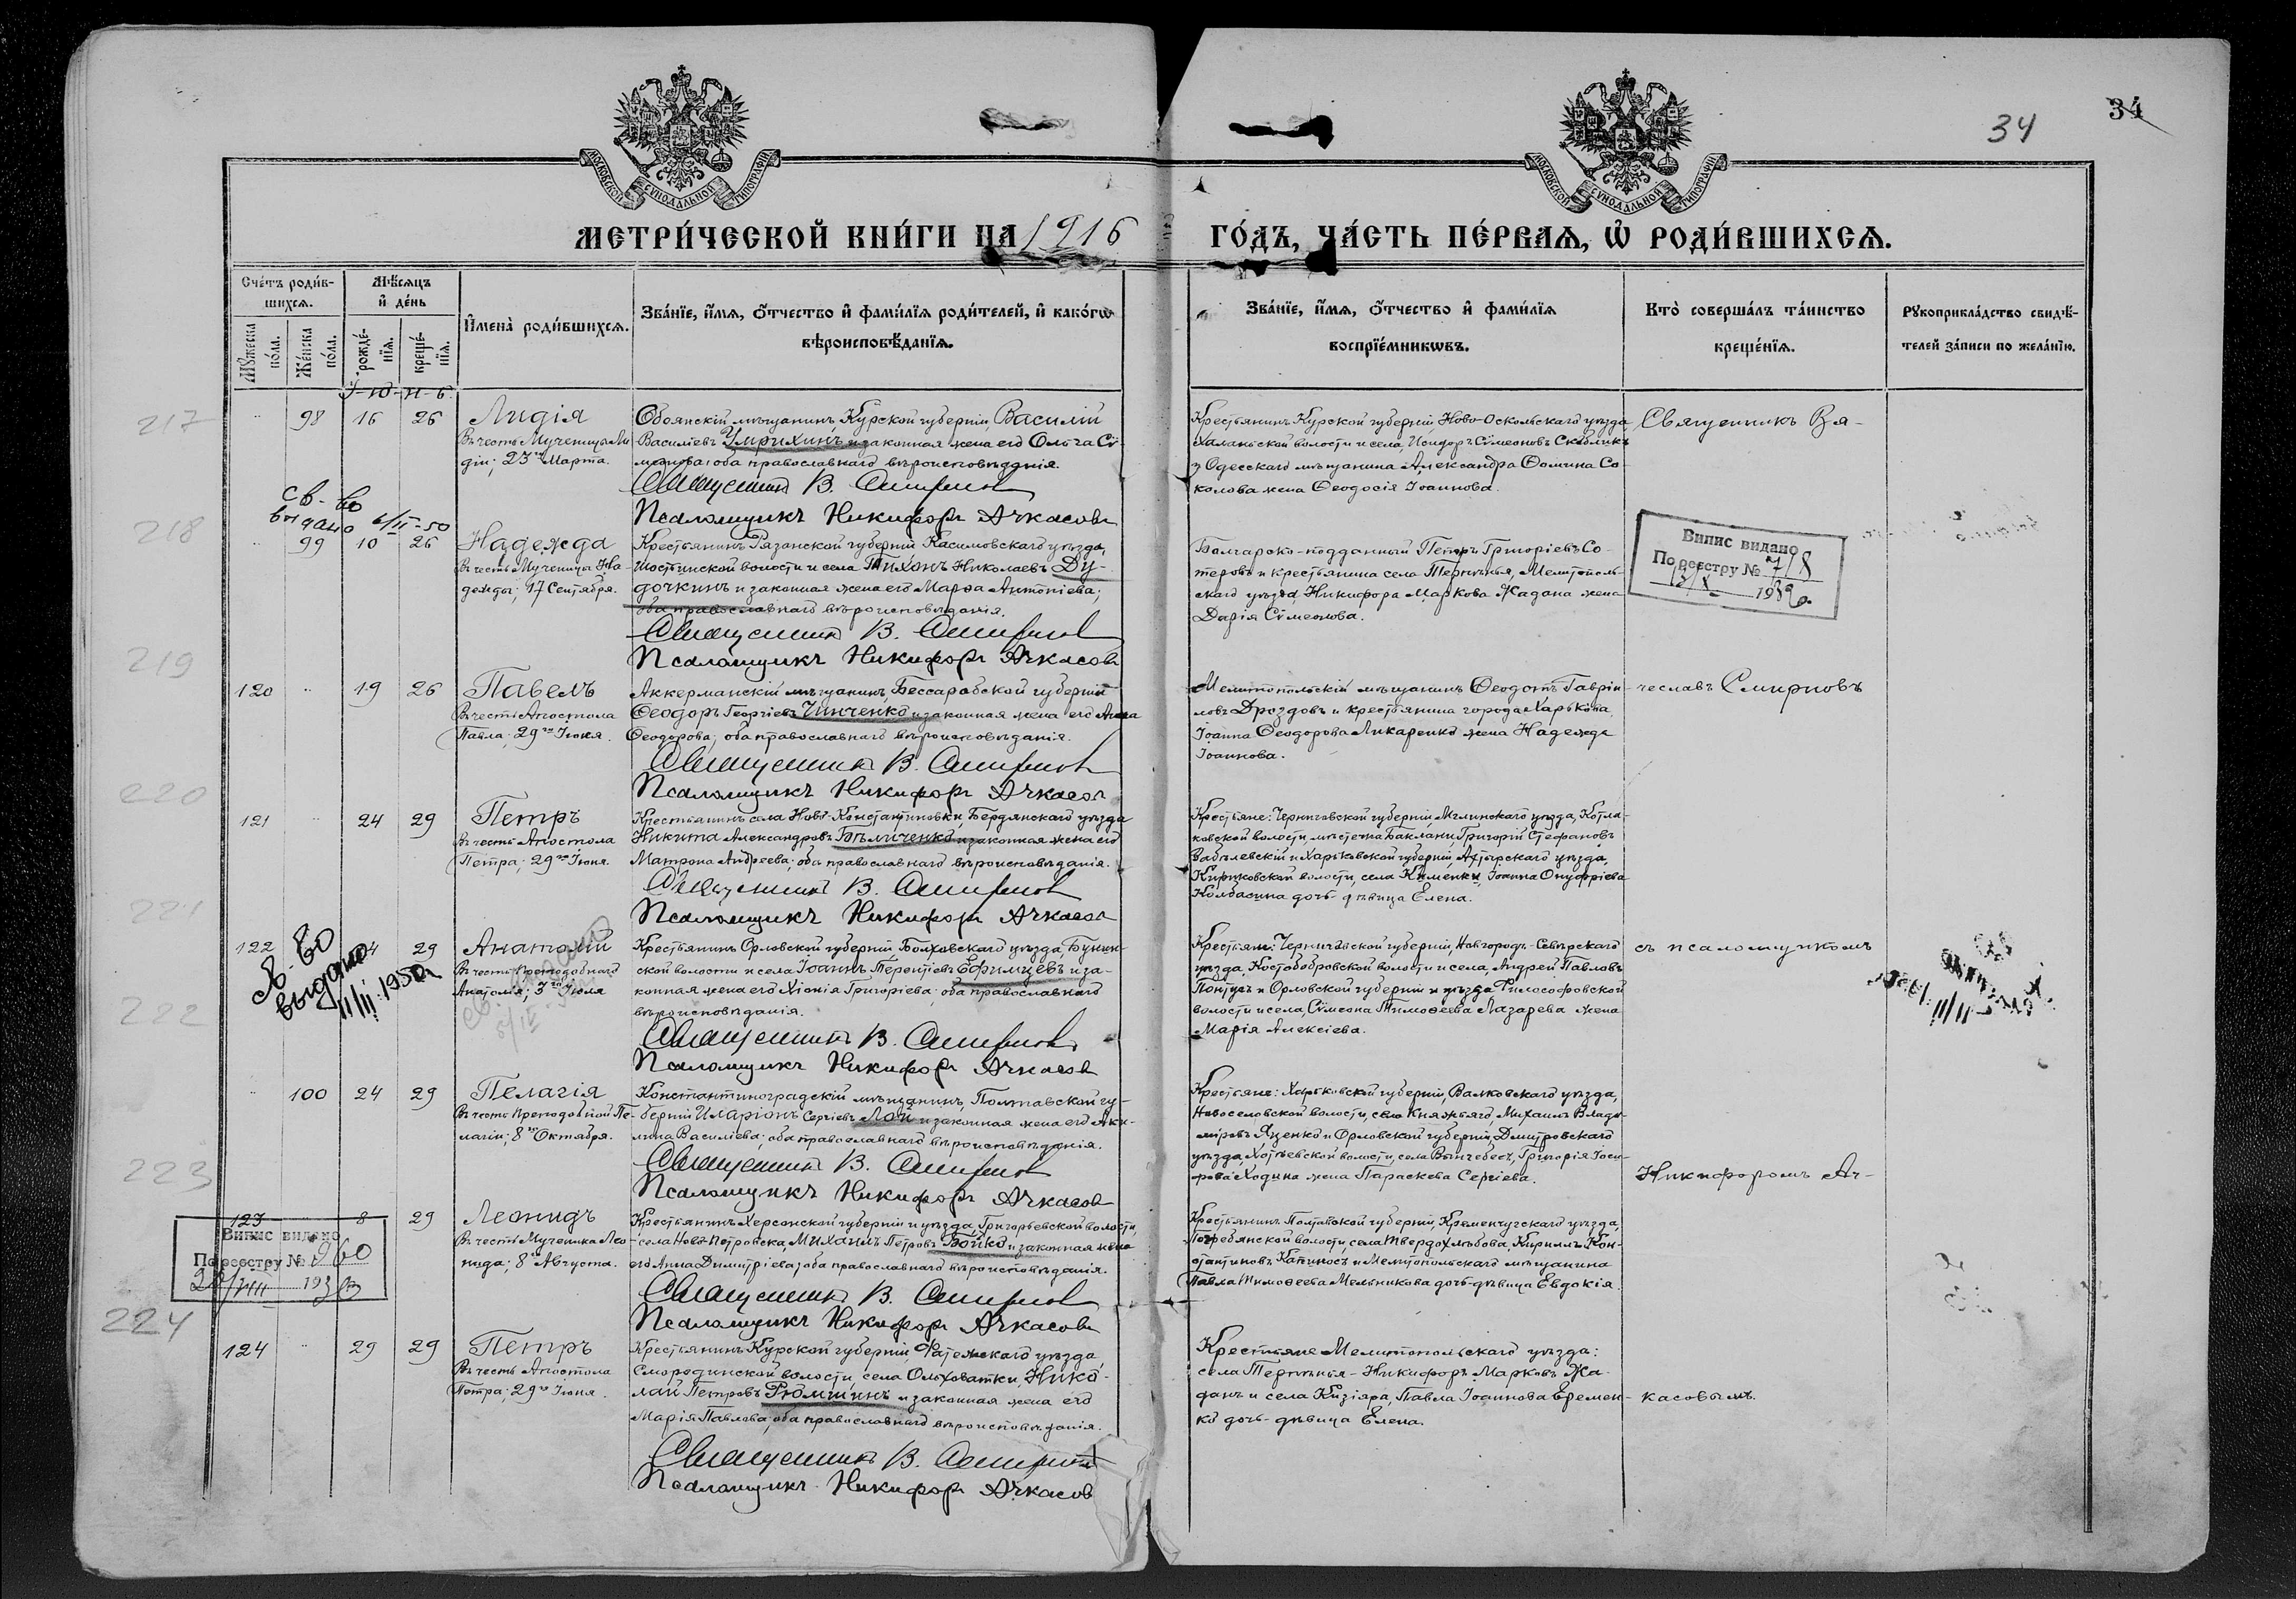 34
34
МОСКОВСКОЙ СѴНОДАЛЬНОЙ ТИПОГРАФІИ
МОСКОВСКОЙ СѴНОДАЛЬНОЙ ТИПОГРАФІИ
МЕТРИ́ЧЕСКОЙ КНИ́ГИ НА 1916 ГО́ДЪ, ЧА́СТЬ ПЕ́РВАЯ, Ѡ҆ РОДИ́ВШИХСЯ.
Сче́тъ роди́в-
шихся.
Мѣ́сяцъ
и҆ де́нь
Мꙋ́жеска по́ла.
Же́нска по́ла.
рожде́-
нїя.
креще́-
нїя.
И҆мена̀ роди́вшихся.
Зва́нїе, и҆́мя, ѻ҆́тчество и҆ фами́лїя роди́телей, и҆ како́гѡ
вѣроисповѣ́данїя.
Зва́нїе, и҆́мя, ѻ҆́тчество и҆ фами́лїя
воспрїе́мникѡвъ.
Кто̀ соверша́лъ та́инство
креще́нїя.
Рꙋкоприкла́дство свидѣ́-
телей за́писи по жела́нїю.
217
98 16 26 Лидія
Въ честь Мученицы Ли-
діи; 23го Марта.
Обоянскій мѣщанинъ, Курской губерніи, Василій
Василіевъ Умрихинъ и законная жена его Ольга Сѵ-
меонова; оба православнаго вѣроисповѣданія.
Священникъ В. Смирновъ
Псаломщикъ Никифоръ Ачкасовъ
Крестьянинъ Курской губерніи Ново-Оскольскаго уѣзда
Халанской волости и села, Исидоръ Сѵмеоновъ
и Одесскаго мѣщанина Александра Ѳомина Со-
колова жена Ѳеодосія Іоаннова.
Священникъ Вя-
св-во
выдано 6/II-50
218
99 10 26 Надежда
Въ честь Мученицы На-
дежды; 17 Сентября.
Крестьянинъ Рязанской губерніи Касимовскаго уѣзда,
волости и села Тихонъ Николаевъ Ду-
дочкинъ и законная жена его Марѳа Антоніева;
оба православнаго вѣроисповѣданія.
Священникъ В. Смирновъ
Псаломщикъ Никифоръ Ачкасовъ
Болгарско-подданный Петръ Григоріевъ Со-
теровъ и крестьянина села Терпѣнья, Мелитополь-
скаго уѣзда, Никифора Маркова Жадана жена
Дарія Сѵмеонова.
Випис видано
По реестру № 7/8
219
120 19 26 Павелъ
Въ честь Апостола
Павла; 29го Іюня.
Аккерманскій мѣщанинъ Бессарабской губерніи
Ѳеодоръ Георгіевъ Чинченко и законная жена его Анна
Ѳеодорова; оба православнаго вѣроисповѣданія.
Священникъ В. Смирновъ
Псаломщикъ Никифоръ Ачкасовъ
Мелитопольскій мѣщанинъ Ѳеодотъ Гаврiи-
ловъ Дроздовъ и крестьянина города Харькова
Іоанна Ѳеодорова Ликаренко жена Надежда
Іоаннова.
чеславъ Смирновъ
220
121 24 29 Петръ
Въ честь Апостола
Петра; 29го Іюня.
Крестьянинъ села Ново-Константиновки, Бердянскаго уѣзда
Никита Александровъ Бѣличенко и законная жена его
Матрона Андреева; оба православнаго вѣроисповѣданія.
Священникъ В. Смирновъ
Псаломщикъ Никифоръ Ачкасовъ
Крестьяне: Черниговской губерніи, Мглинскаго уѣзда, Котля-
ковской волости, мѣстечка Баклани, Григорій Стефановъ
и Харьковской губерніи, Ахтырскаго уѣзда,
волости, села Каменки, Іоанна Онуфріева
Колбасина дочь-дѣвица Елена.
221
122 4 29 Анатолій
Въ честь Преподобнаго
Анатолія; 3го Іюля
Крестьянинъ Орловской губерніи Болховскаго уѣзда, Бунин-
ской волости и села Іоаннъ Терентіевъ Ефимцевъ и за-
конная жена его Хіонія Григоріева; оба православнаго
вѣроисповѣданія.
Священникъ В. Смирновъ
Псаломщикъ Никифоръ Ачкасовъ
Крестьяне: Черниговской губерніи, Новгородъ-Сѣверскаго
уѣзда, Костобобровской волости и села, Андрей Павловъ
и Орловской губерніи и уѣзда Философовской
волости и села, Сѵмеона Тимоѳеева Лазарева жена
Марія Алексіева.
съ псаломщикомъ
св-во
выдано
11/III 1950г
222
100 24 29 Пелагія
Въ честь Преподобной Пе-
лагіи; 8го Октября.
Константиноградскій мѣщанинъ, Полтавской гу-
берніи Иларіонъ Сергіевъ Лой и законная жена его Аки-
лина Василіева; оба православнаго вѣроисповѣданія.
Священникъ В. Смирновъ
Псаломщикъ Никифоръ Ачкасовъ
Крестьяне: Харьковской губерніи, Валковскаго уѣзда,
Новоселовской волости, села Княжьяго, Михаилъ Влади-
міровъ Яценко и Орловской губерніи, Дмитровскаго
уѣзда, волости, села Григорія Іоси-
фова Ходина жена Параскева Сергіева.
Никифоромъ Ач-
223
123 8 29 Леонидъ
Въ честь Мученика Лео-
нида; 8го Августа.
Крестьянинъ Херсонской губерніи и уѣзда, Григорьевской волости,
села Ново-Петровска, Михаилъ Петровъ Бойко и законная жена
его Анна Димитріева; оба православнаго вѣроисповѣданія.
Священникъ В. Смирновъ
Псаломщикъ Никифоръ Ачкасовъ
Крестьянинъ Полтавской губерніи, Кременчугскаго уѣзда,
Погребянской волости, села Твердохлѣбова, Кириллъ Кон-
стантиновъ Капиносъ и Мелитопольскаго мѣщанина
Павла Тимоѳеева Мельникова дочь-дѣвица Евдокія.
Випис видано
По реестру № 960
224
124 29 29 Петръ
Въ честь Апостола
Петра; 29го Іюня.
Крестьянинъ Курской губерніи, Фатежскаго уѣзда
Смородинской волости, села Ольховатки, Нико-
лай Петровъ Рюмшинъ и законная жена его
Марія Павлова; оба православнаго вѣроисповѣданія.
Священникъ В. Смирновъ
Псаломщикъ Никифоръ Ачкасовъ
Крестьяне Мелитопольскаго уѣзда:
села Терпѣнья - Никифоръ Марковъ Жа-
данъ и села Кизіяра, Павла Іоаннова Еремен-
ко дочь-дѣвица Елена.
касовымъ.